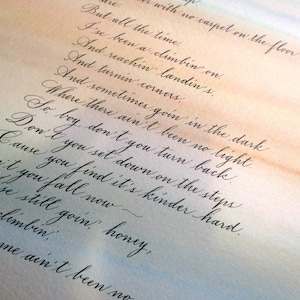 are
with no carpet on the floor
But all the time,
I'se been a climbin' on
And reachin' landin's,
And turnin' corners,
And sometimes goin' in the dark
Where there ain't been no light
So boy don't you turn back
Don't you set down on the steps
'Cause you find it's kinder hard.
't you fall now
se still goin', honey,
climbin',
me ain't been no